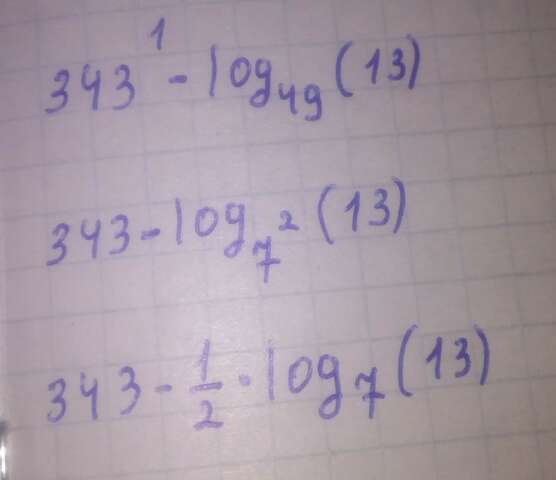 343¹ - log₄₉(13)
343 - log₇²(13)
343 - 1/2 · log₇(13)